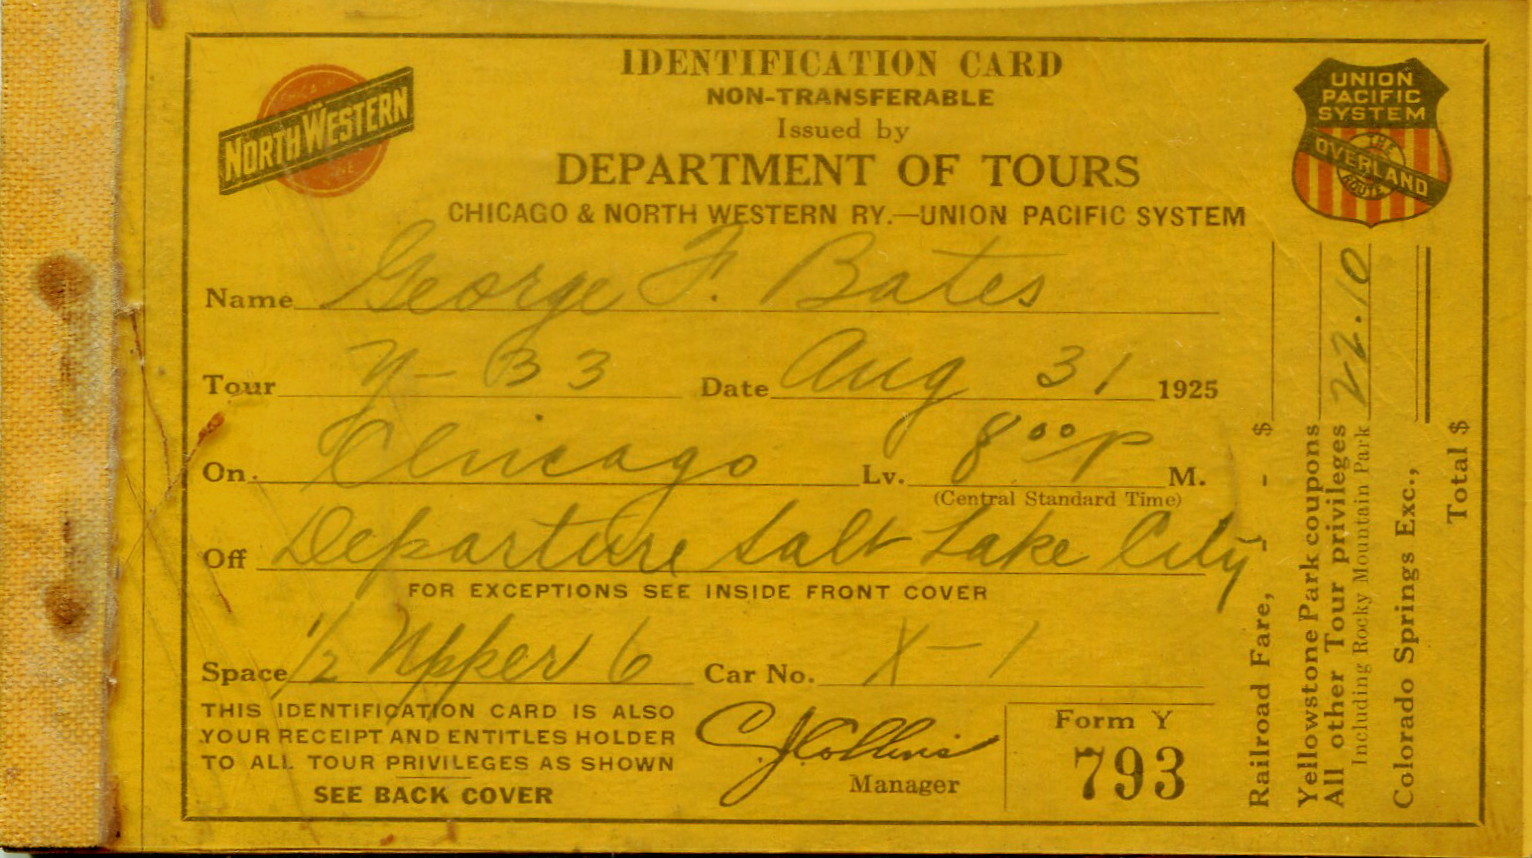 IDENTIFICATION CARD
NON-TRANSFERABLE
Issued by
DEPARTMENT OF TOURS
CHICAGO & NORTH WESTERN RY.—UNION PACIFIC SYSTEM
NORTH WESTERN
UNION
PACIFIC
SYSTEM
THE
OVERLAND
ROUTE
Name George F. Bates
Tour Y-33 Date Aug 31 1925
On. Chicago Lv. 8 00 P M.
(Central Standard Time)
Off Departure Salt Lake City
FOR EXCEPTIONS SEE INSIDE FRONT COVER
Space 1/2 Upper 6 Car No. X-1
THIS IDENTIFICATION CARD IS ALSO
YOUR RECEIPT AND ENTITLES HOLDER
TO ALL TOUR PRIVILEGES AS SHOWN
SEE BACK COVER
C J Collins
Manager
Form Y
793
Railroad Fare, - - $
Yellowstone Park coupons
All other Tour privileges 22.10
Including Rocky Mountain Park
Colorado Springs Exc.,
Total $